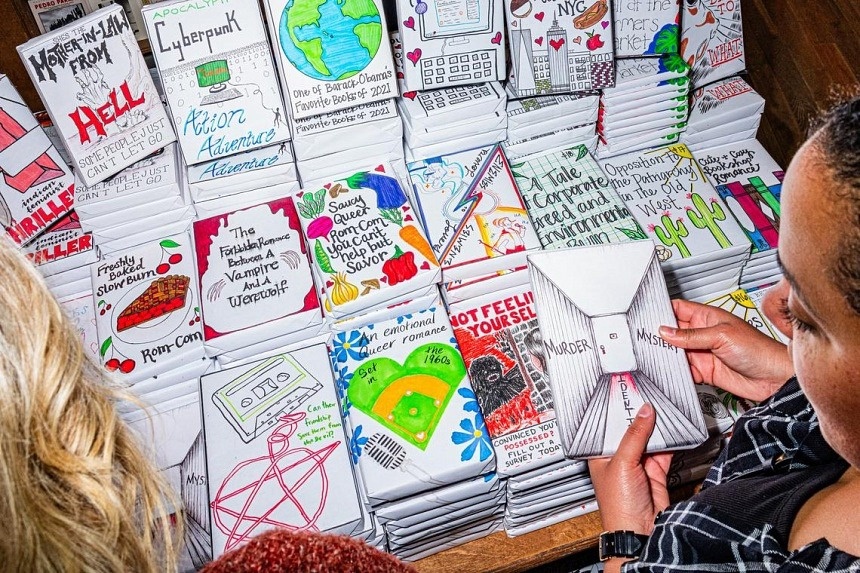 PEDRO PA
SHE'S THE
MOTHER-IN-LAW
FROM
HELL
SOME PEOPLE JUST
CAN'T LET GO
CAN'T LET GO
APOCALYPTI
CyberpunK
Action
Adventure
Adventure
One of Barack Obama's
Favorite Books of 2021
Favorite Books of 2021
NYC
of the
Farmers
Market
Market
TO
WHALE
indian
feminist
THRILLER
indian feminist
THRILLER
Freshly
Baked
Slow Burn
Rom-Com
The
Forbidden Romance
Between A
Vampire
And A
Werewolf
Saucy
Queer
Rom-Com
You Can't
help but
Savor
ENEMIES
A Tale
of Corporate
Greed and
Environmental
Ruin
Opposition to
the Patriarchy
in the Old
West
Cute & Cozy
Bookshop
Romance
Can their
friendship
save them from
the devil?
An emotional
Queer romance
Set in
the 1960s
NOT FEELIN
YOURSELF
CONVINCED YOU'RE
POSSESSED?
FILL OUT A
SURVEY TODAY
MURDER
MYSTERY
IDENTITY
MYS